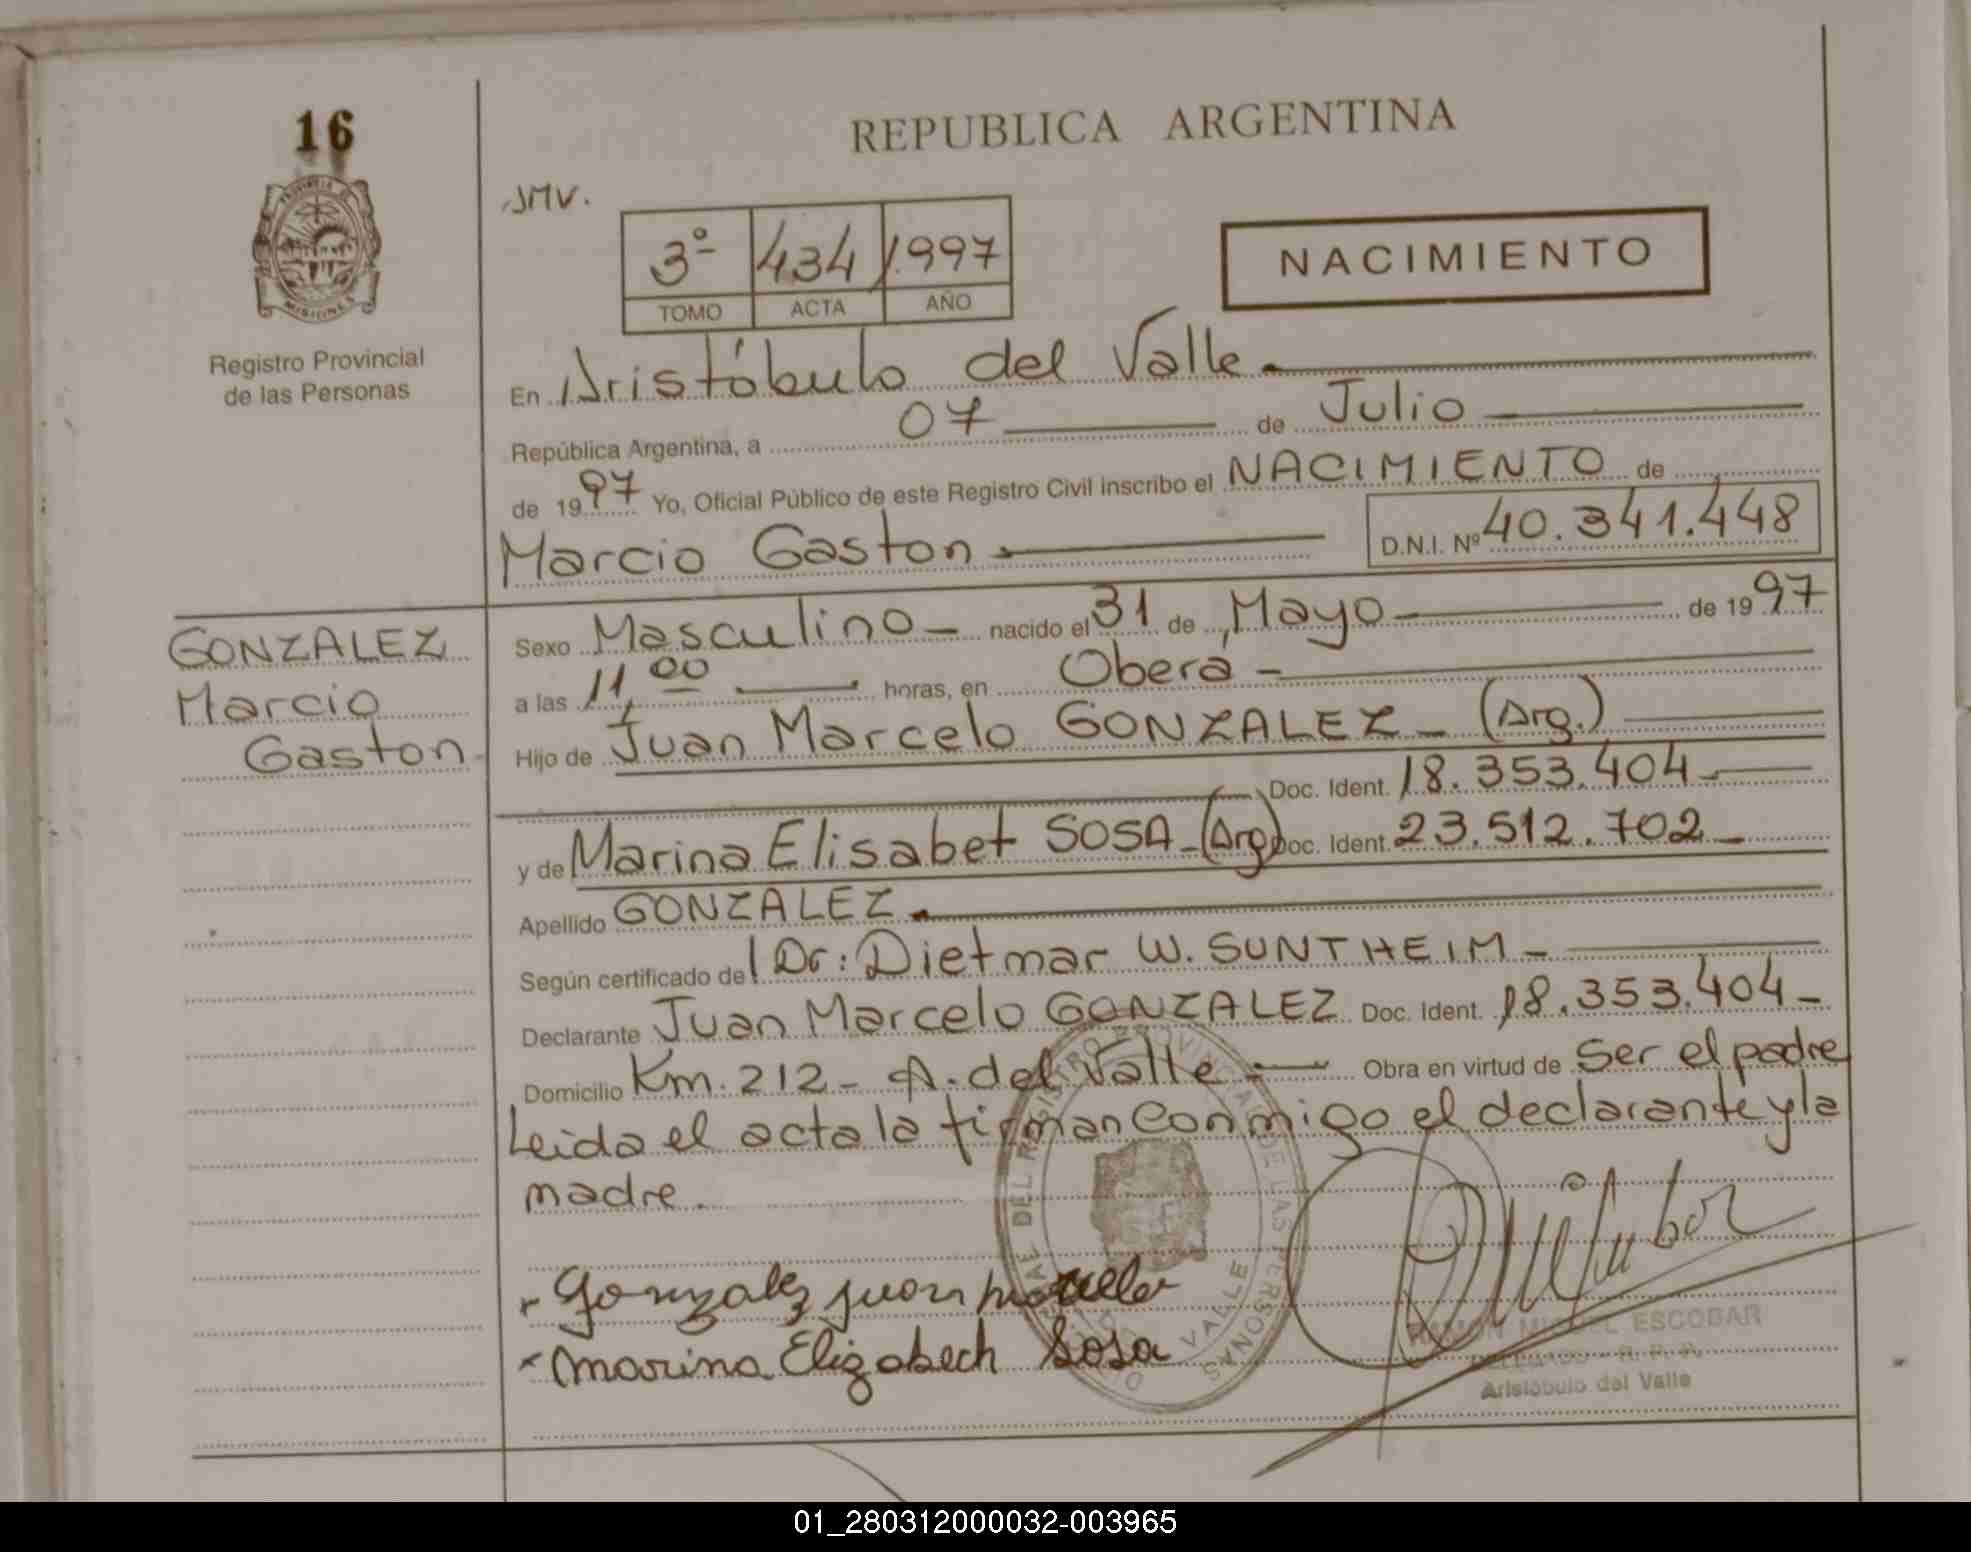 16
PROVINCIA DE
MISIONES
Registro Provincial
de las Personas
REPUBLICA ARGENTINA
JMV.
3º 434 1.997
TOMO ACTA AÑO
NACIMIENTO
En Aristóbulo del Valle
República Argentina, a 07 de Julio
de 1997 Yo, Oficial Público de este Registro Civil inscribo el NACIMIENTO de
Marcio Gaston D.N.I. Nº 40.341.448
GONZALEZ
Marcio
Gaston
Sexo Masculino nacido el 31 de Mayo de 1997
a las 11,00 horas, en Oberá
Hijo de Juan Marcelo GONZALEZ (Arg.)
Doc. Ident. 18.353.404
y de Marina Elisabet SOSA (Arg) Doc. Ident. 23.512.702
Apellido GONZALEZ
Según certificado de Dr: Dietmar W. SUNTHEIM
Declarante Juan Marcelo GONZALEZ Doc. Ident. 18.353.404
Domicilio Km. 212 - A. del Valle Obra en virtud de Ser el padre
Leida el acta la firman conmigo el declarante y la
madre.
Gonzalez juan marcelo
marina Elizabech Sosa
DEL REGISTRO PROVINCIAL DE LAS PERSONAS
VALLE
RAMON MIGUEL ESCOBAR
DELEGADO - R. P. P.
Aristóbulo del Valle
01_280312000032-003965